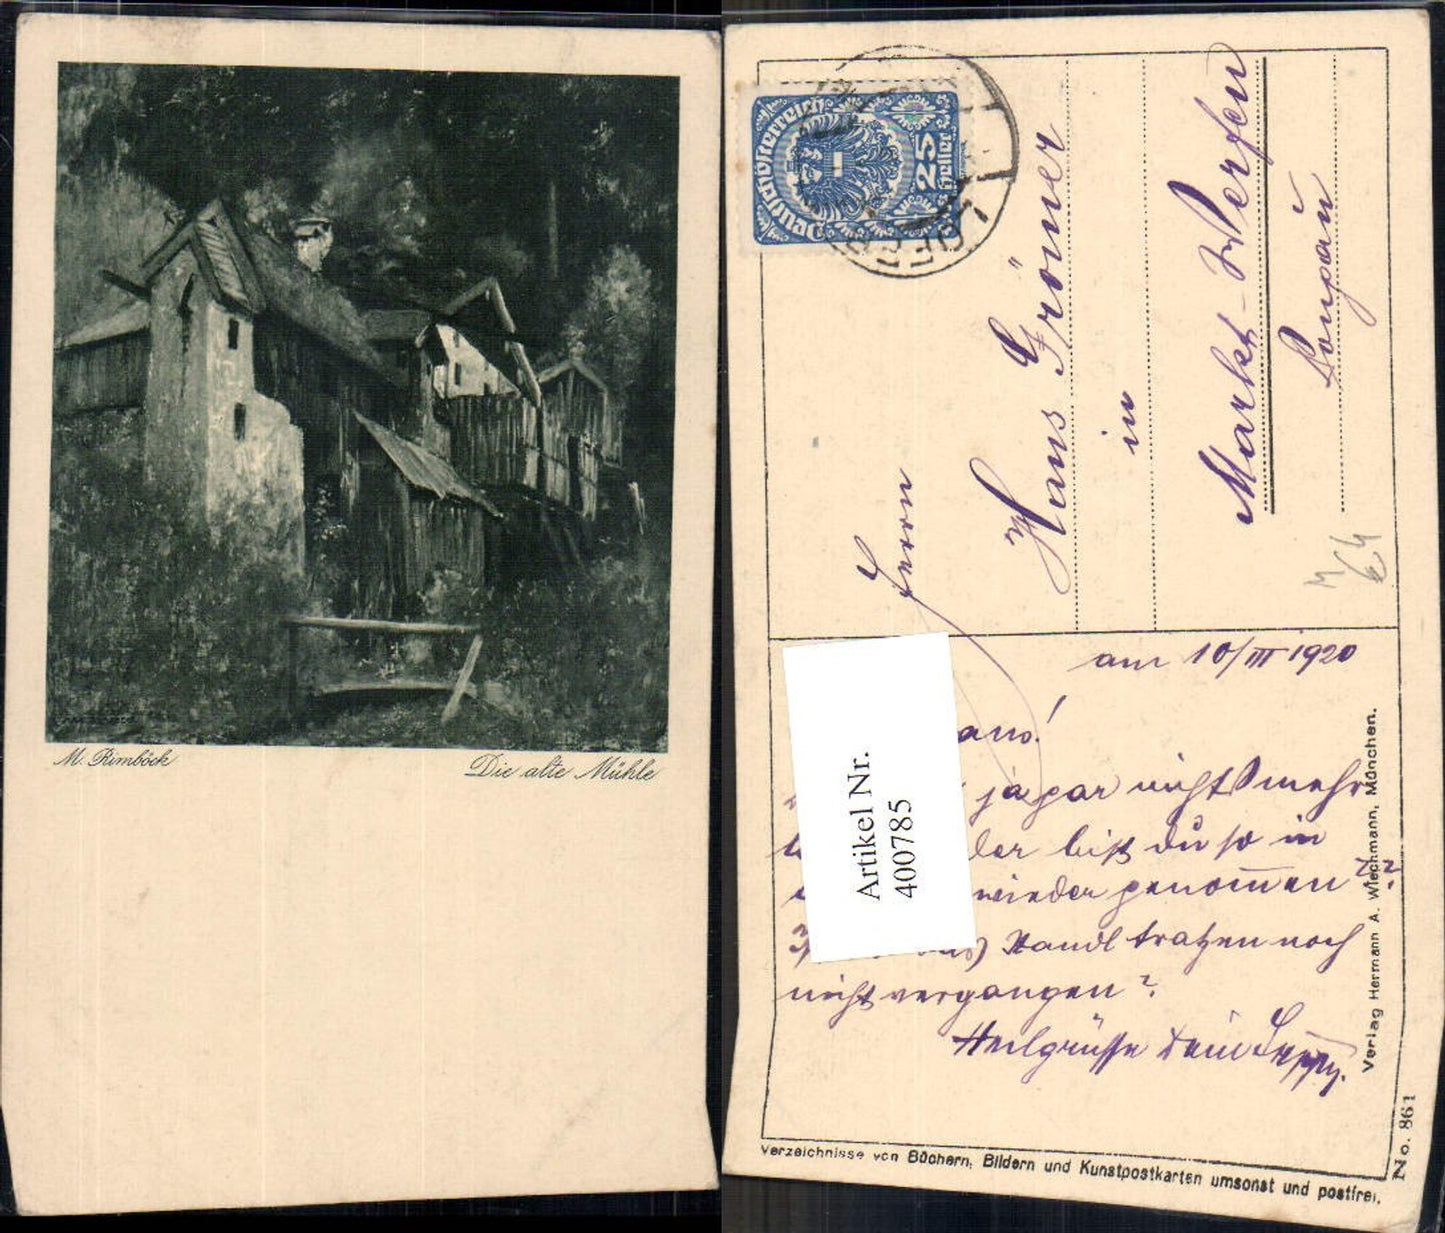 M. Rimböck
Die alte Mühle
Deutschösterreich
25
Heller
Herrn
Hans Grömer
in
Markt-Werfen
Pongau
Artikel Nr.
400785
am 10/III 1920
ans!
ja gar nichts mehr
der bist du so in
wieder genommen??
Handl tratzen noch
nicht vergangen?
Heilgrüsse Dein
Verlag Hermann A. Wiechmann, München.
No. 861
Verzeichnisse von Büchern, Bildern und Kunstpostkarten umsonst und postfrei.